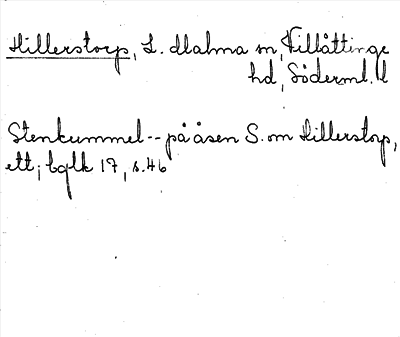 Hillerstorp, L. Malma sn, Villåttinge
hd, Söderml. l
Stenkummel -- på åsen S. om Hillerstorp,
ett; bglk 17, s. 46